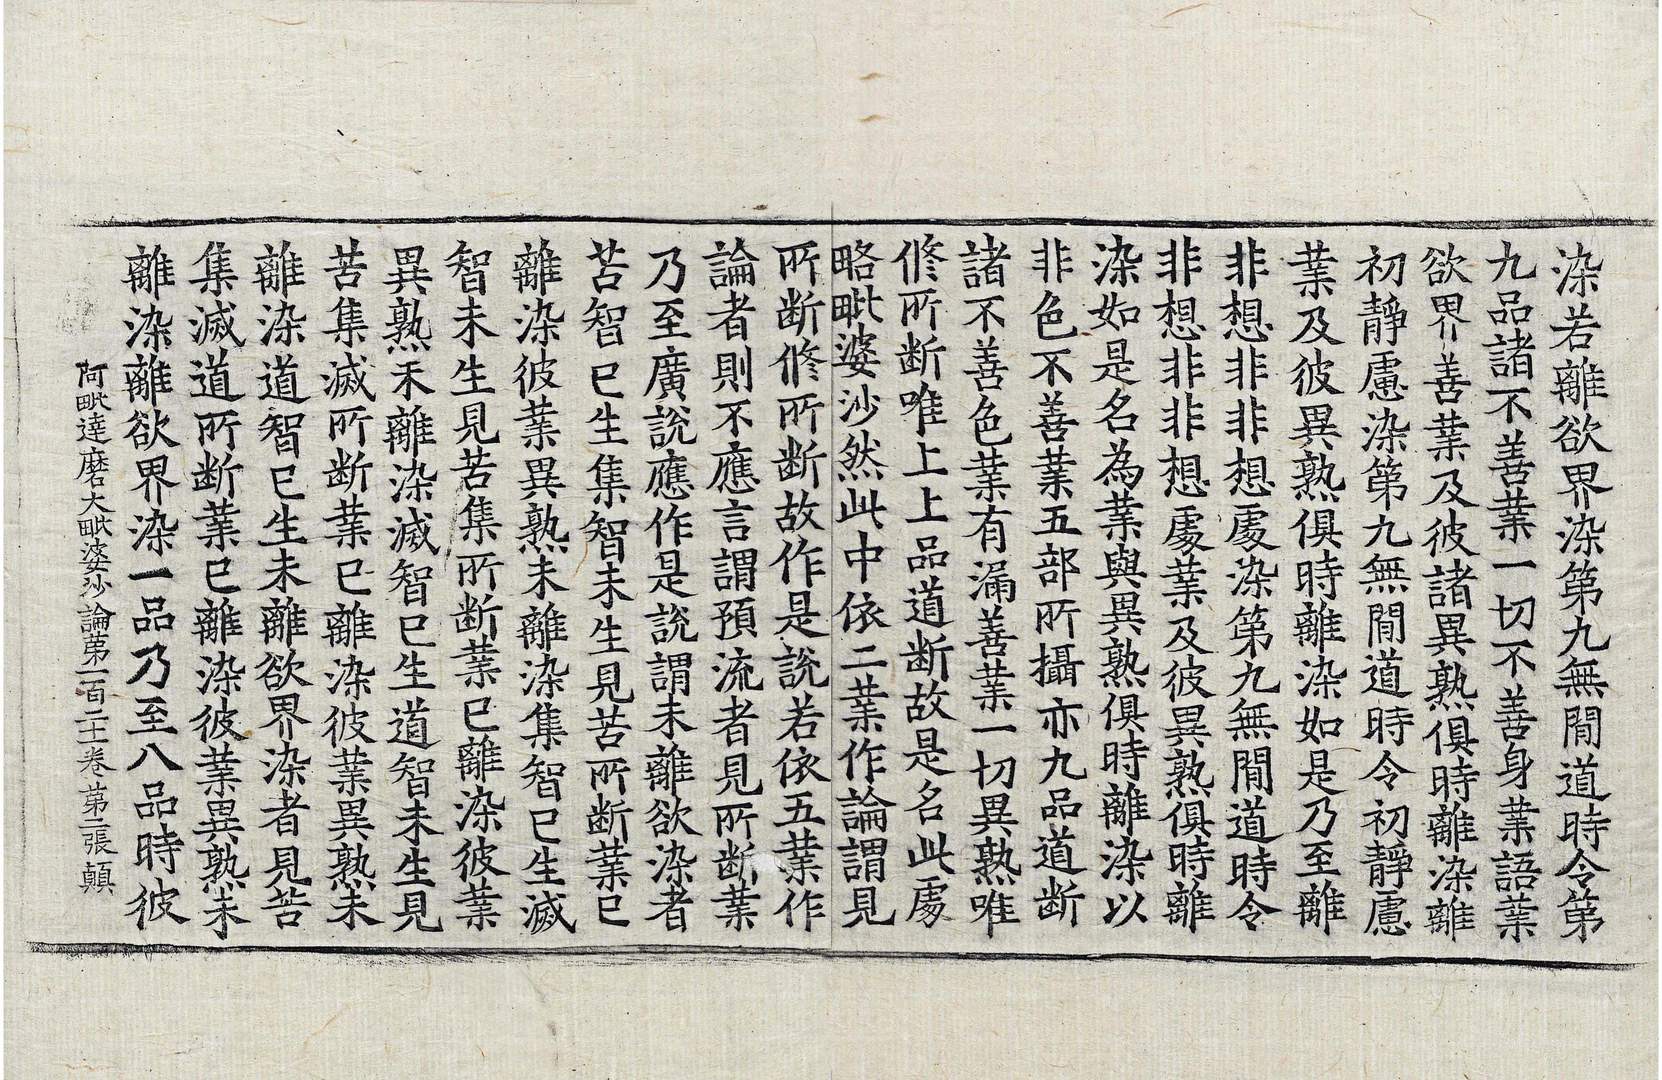 染若離欲界染第九無間道時令第
九品諸不善業一切不善身業語業
欲界善業及彼諸異熟俱時離染離
初靜慮染第九無間道時令初靜慮
業及彼異熟俱時離染如是乃至離
非想非非想處染第九無間道時令
非想非非想處業及彼異熟俱時離
染如是名為業與異熟俱時離染以
非色不善業五部所攝亦九品道断
諸不善色業有漏善業一切異熟唯
修所断唯上上品道断故是名此處
略毗婆沙然此中依二業作論謂見
所断修所断故作是說若依五業作
論者則不應言謂預流者見所断業
乃至廣說應作是說謂未離欲染者
苦智已生集智未生見苦所断業已
離染彼業異熟未離染集智已生滅
智未生見苦集所断業已離染彼業
異熟未離染滅智已生道智未生見
苦集滅所断業已離染彼業異熟未
離染道智已生未離欲界染者見苦
集滅道所断業已離染彼業異熟未
離染離欲界染一品乃至八品時彼
阿毗達磨大毗婆沙論第一百二十卷 第二張 顛